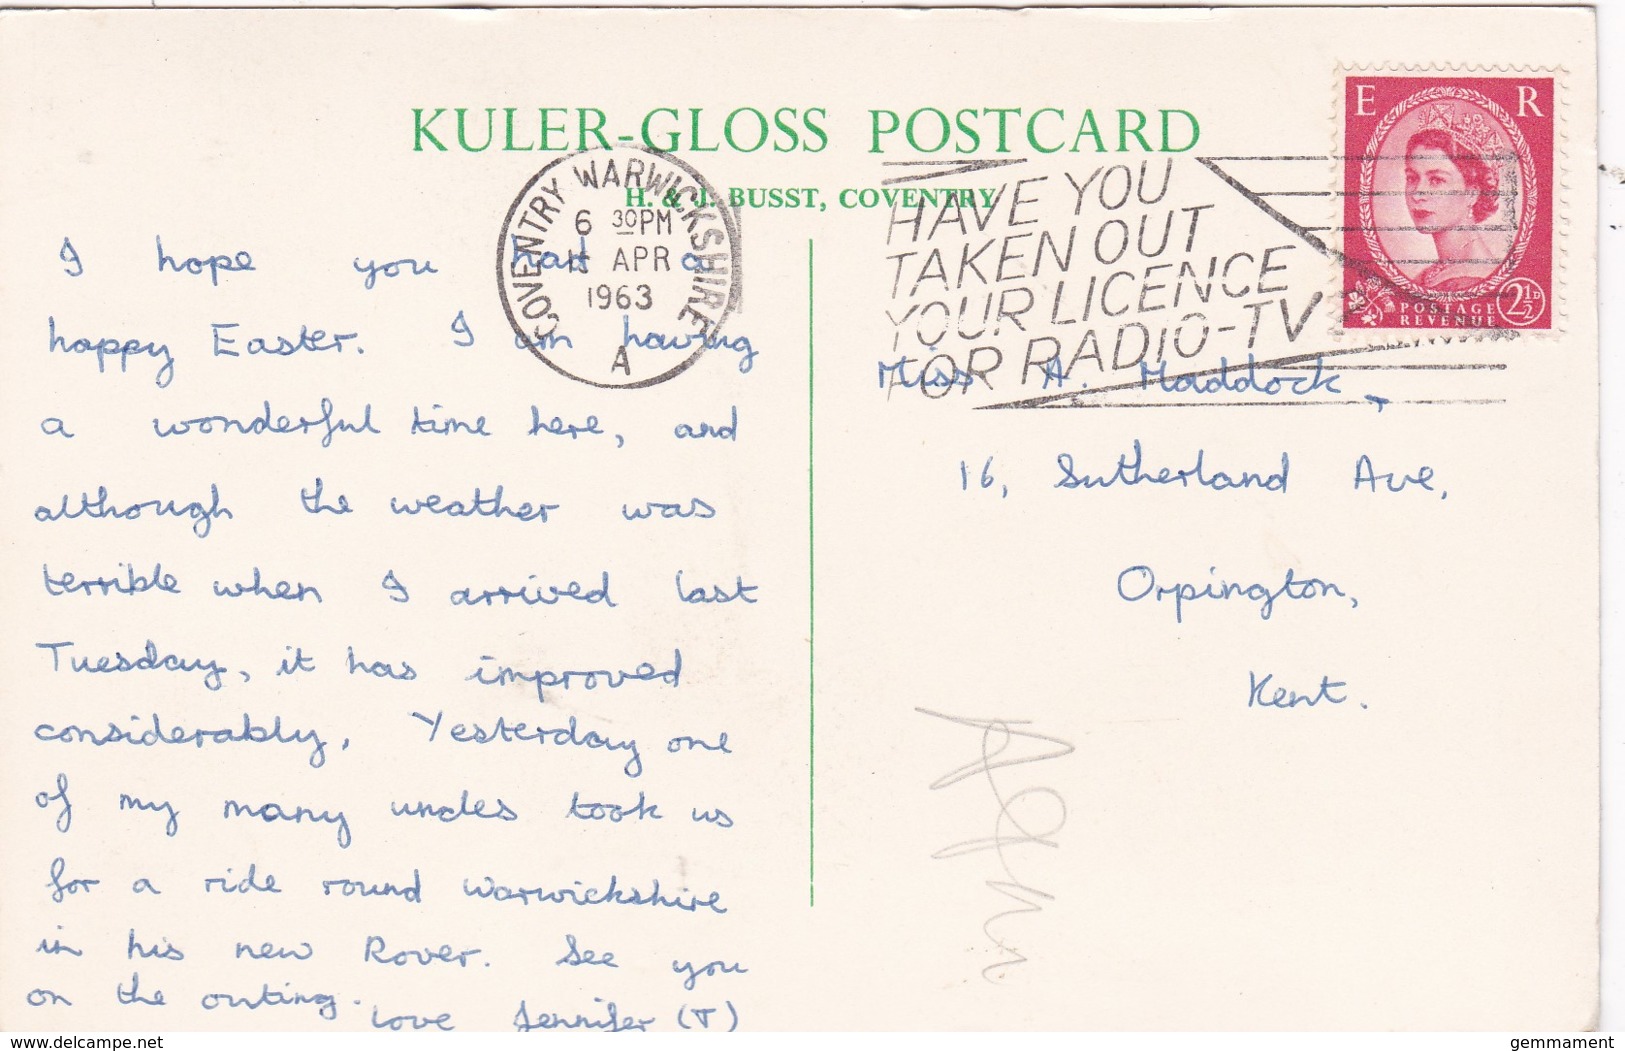 KULER-GLOSS POSTCARD
H. & J. BUSST, COVENTRY
COVENTRY WARWICKSHIRE
6 30PM
APR
1963
A
HAVE YOU
TAKEN OUT
YOUR LICENCE
FOR RADIO-TV
E R
POSTAGE
REVENUE
2½D
I hope you had a
happy Easter. I am having
a wonderful time here, and
although the weather was
terrible when I arrived last
Tuesday, it has improved
considerably, Yesterday one
of my many uncles took us
for a ride round Warwickshire
in his new Rover. See you
on the outing.
Love Jennifer (T)
Miss A. Maddock,
16, Sutherland Ave,
Orpington,
Kent.
delcampe.net
gemmament